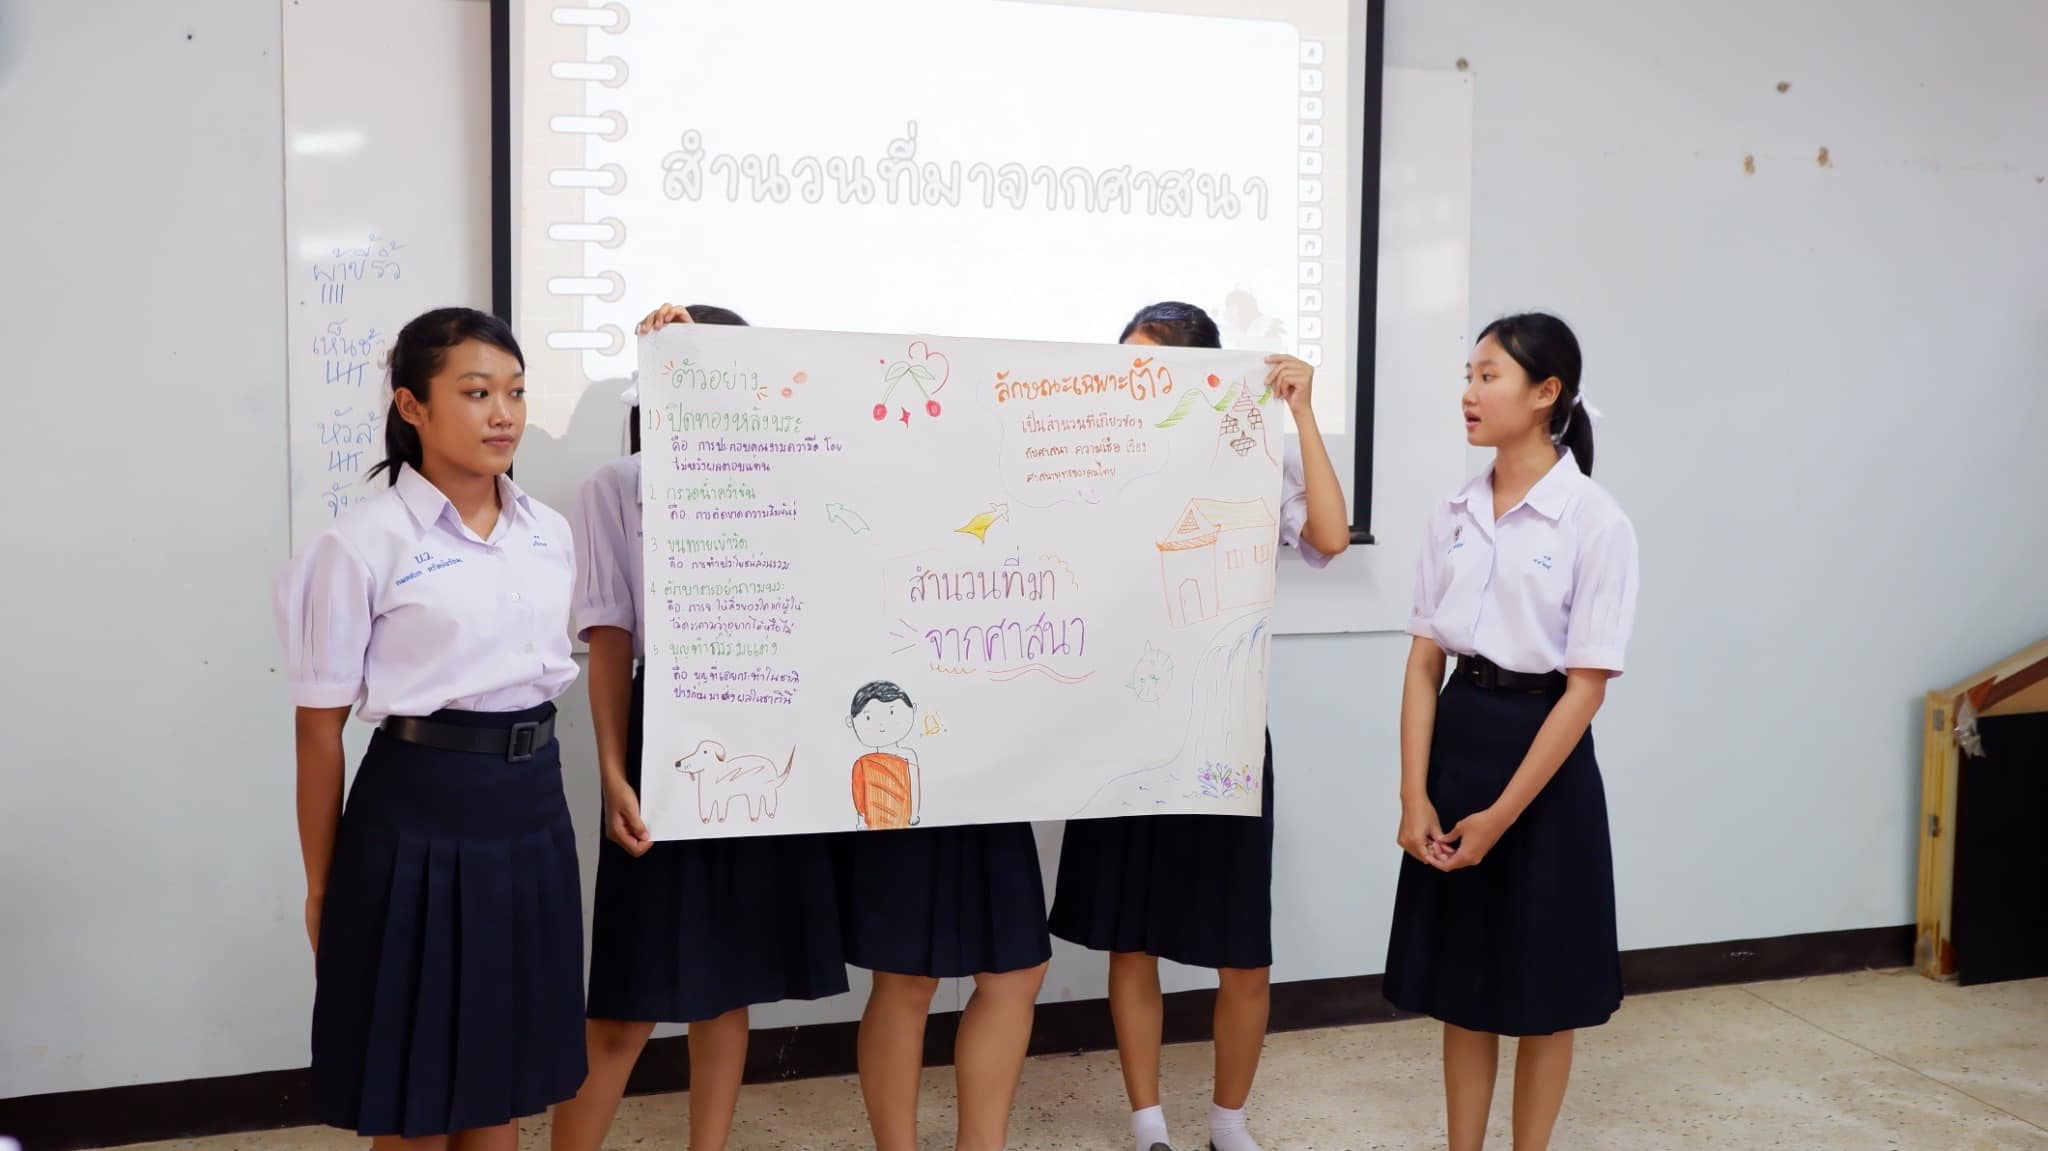 สำนวนที่มาจากศาสนา
ผู้ขี้ริ้ว
เห็นช้า
หัวล้
ตัวอย่าง
1) ปิดทองหลังพระ
คือ การประกอบคุณงามความดี โดย
ไม่หวังผลตอบแทน
2. กรวดน้ำคว่ำขัน
คือ การตัดขาดความสัมพันธ์
3. ขนทรายเข้าวัด
คือ การทำประโยชน์ส่วนรวม
4. ตักบาตรอย่าถามพระ
คือ การจะให้สิ่งของใดแก่ผู้ให้
ไม่ควรถามว่าอยากได้หรือไม่
5. บุญทำกรรมแต่ง
คือ บุญที่เคยกระทำในชาติ
ปางก่อนมาส่งผลในชาตินี้
ลักษณะเฉพาะตัว
เป็นสำนวนที่เกี่ยวข้อง
กับศาสนา ความเชื่อ เรื่อง
ศาสนาพุทธของคนไทย
สำนวนที่มา
จากศาสนา
บ.ว.